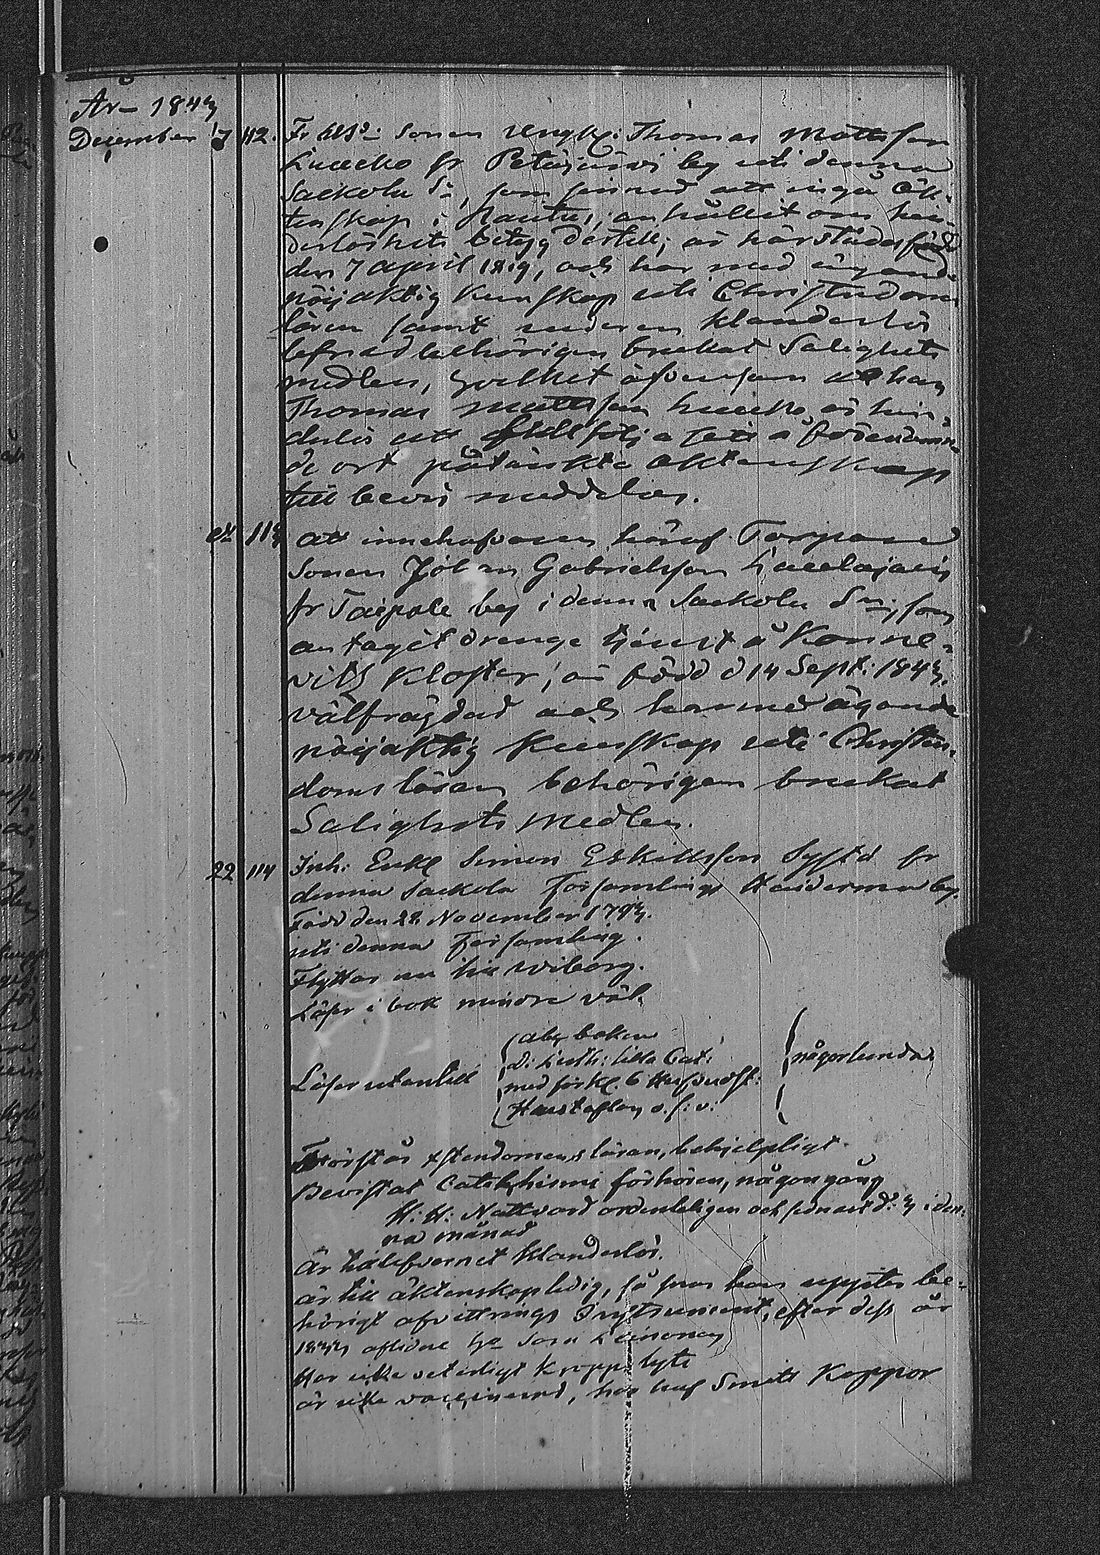 År 1843
December 17 112. Fr Bds: Sonen Ungk: Thomas Mattsson
Luukko fr Petäjärvi by uti denna
Sackola Sn, som sinnad att ingå äk-
tenskap i Rautus, anhållit om hin-
derlöshets betyg dertill, är härstädes född
den 7 April 1819, och har med ägande
nöjaktig kunskap uti Christendoms
läran samt under en klanderlös
lefnad behörigen brukat Salighets
medlen, hvilket äfvensom att han
Thomas Mattsson är hin-
derlös att fullfölja sitt å förenämn-
de ort påtänkta äktenskap
till bevis meddelas.
113 att innehafvaren häraf Torpare
Sonen Johan Gabrielsson
fr Taipale by i denna Sackola Sn, som
antagit drenge tjenst å Konne-
vits Kloster, är född d 14 Sept: 1843,
välfrägdad och har med ägande
nöjaktig kunskap uti Christen-
doms läran behörigen brukat
Salighets Medlen.
22 114 Inh: Enkl Simon Eskilsson fr
denna Sackola Församlings by.
Född den 28 November 1793.
uti denna Församling.
Flyttar nu till Wiborg.
Läser i bok mindre väl.
Läser utantill
abc boken
D: Luth: lilla Cat:
med förkl. 6 Hufvudst:
Haustaflan o. s. v.
någorlunda
Förstår Xstendomens läran, behjelpligt.
Bevistat Catekhismi förhören, någon gång
H: H: Nattvard ordenteligen och senast d: 3 i den-
na månad
Är till lefvernet klanderlös.
är till äktenskap ledig, så snart han uppter be-
hörigt afvittrings Instrument, efter dess år
aflidne
Har icke vetterligt kropps lyte
är icke vaccinerad, har haft Smitt Koppor